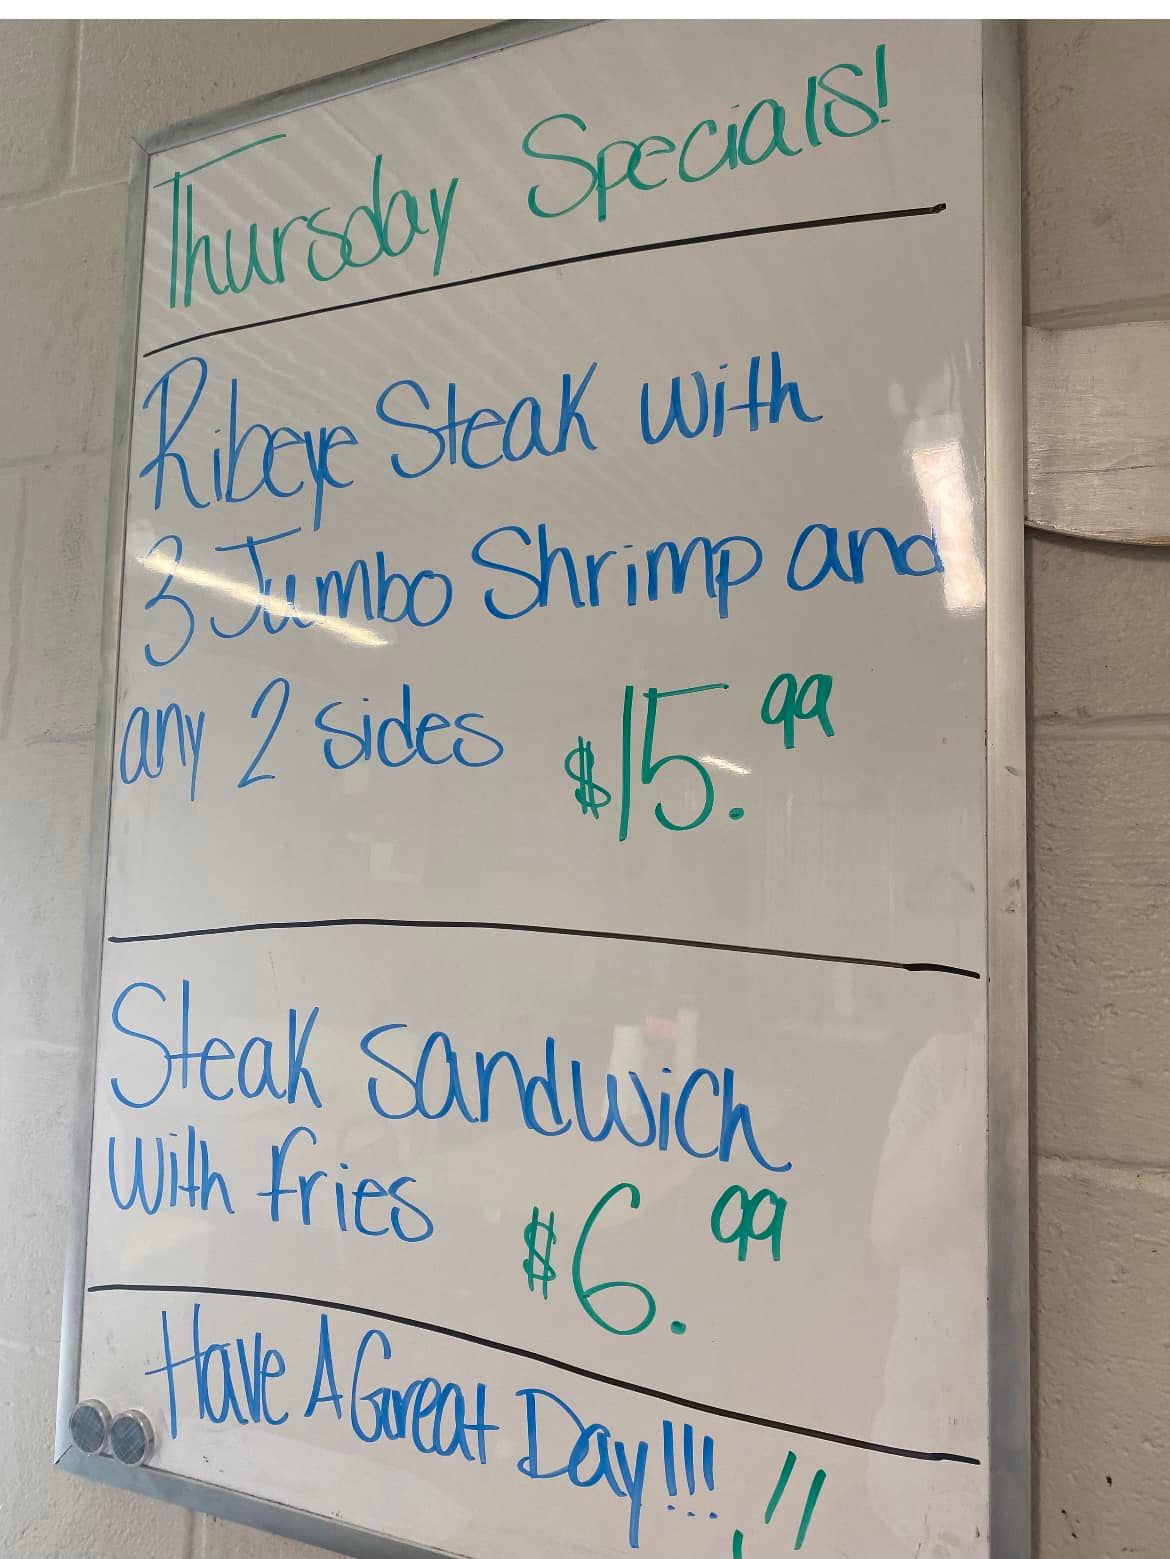 Thursday Specials!
Ribeye Steak with
3 Jumbo Shrimp and
any 2 sides $15.99
Steak Sandwich
with fries $6.99
Have A Great Day!!!